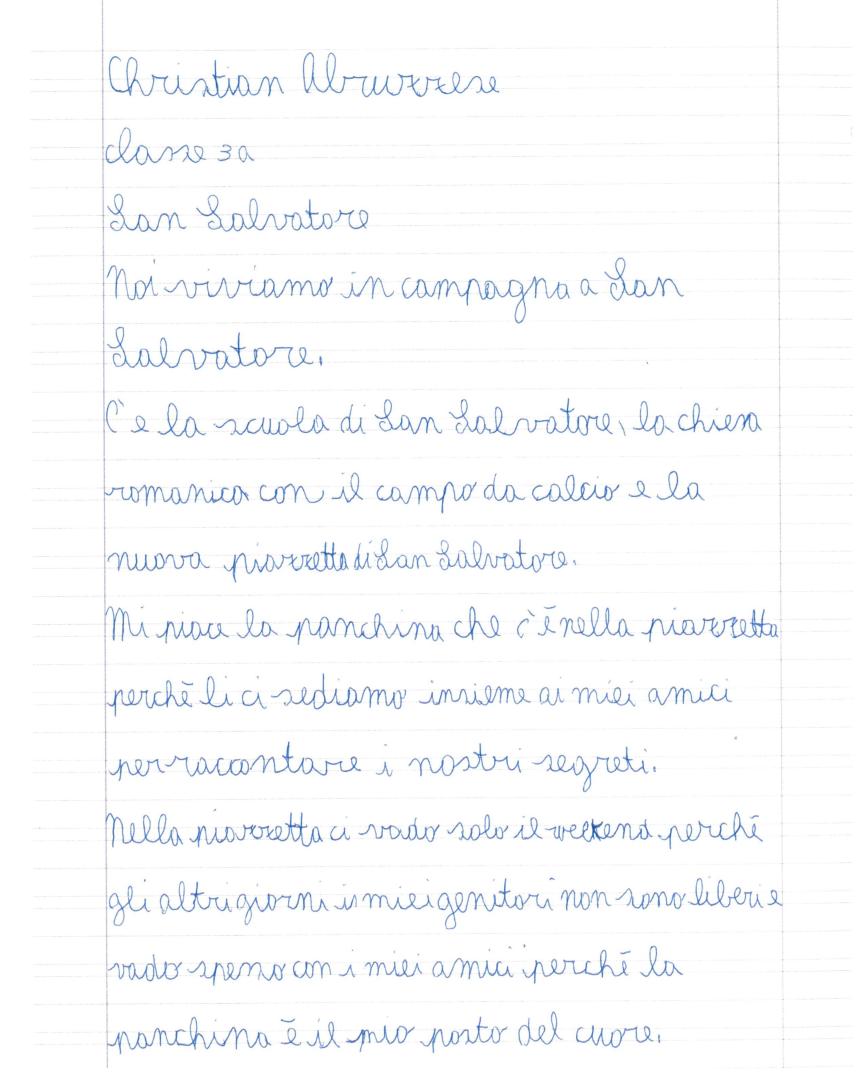 Christian Abruzzese
classe 3a
San Salvatore
Noi viviamo in campagna a San
Salvatore.
C'e la scuola di San Salvatore, la chiesa
romanica con il campo da calcio e la
nuova piazzetta di San Salvatore.
Mi piace la panchina che c'è nella piazzetta
perchè li ci sediamo insieme ai miei amici
per raccontare i nostri segreti.
Nella piazzetta ci vado solo il weekend perchè
gli altri giorni i miei genitori non sono liberi e
vado spesso con i miei amici perchè la
panchina è il mio posto del cuore.